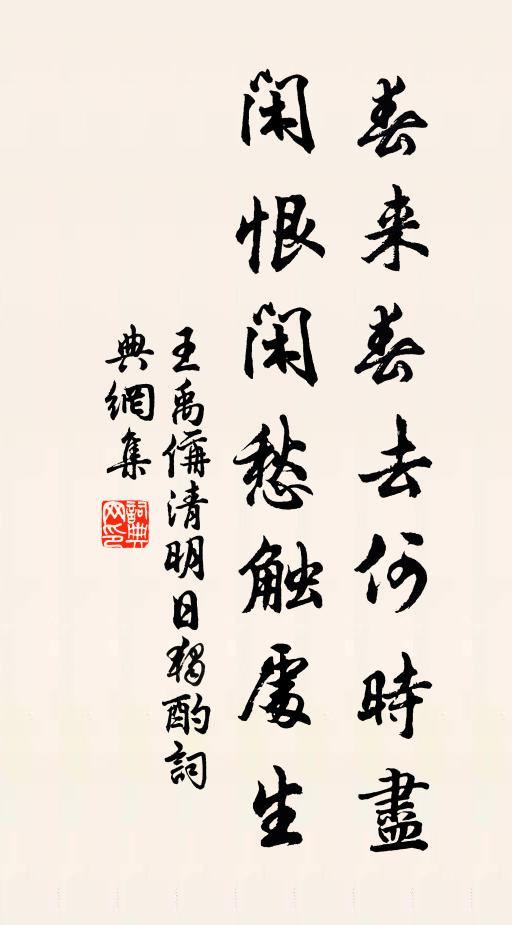 春来春去何時盡
闲恨闲愁触處生
王禹偁清明日独酌詞
典網集
詞典
网印